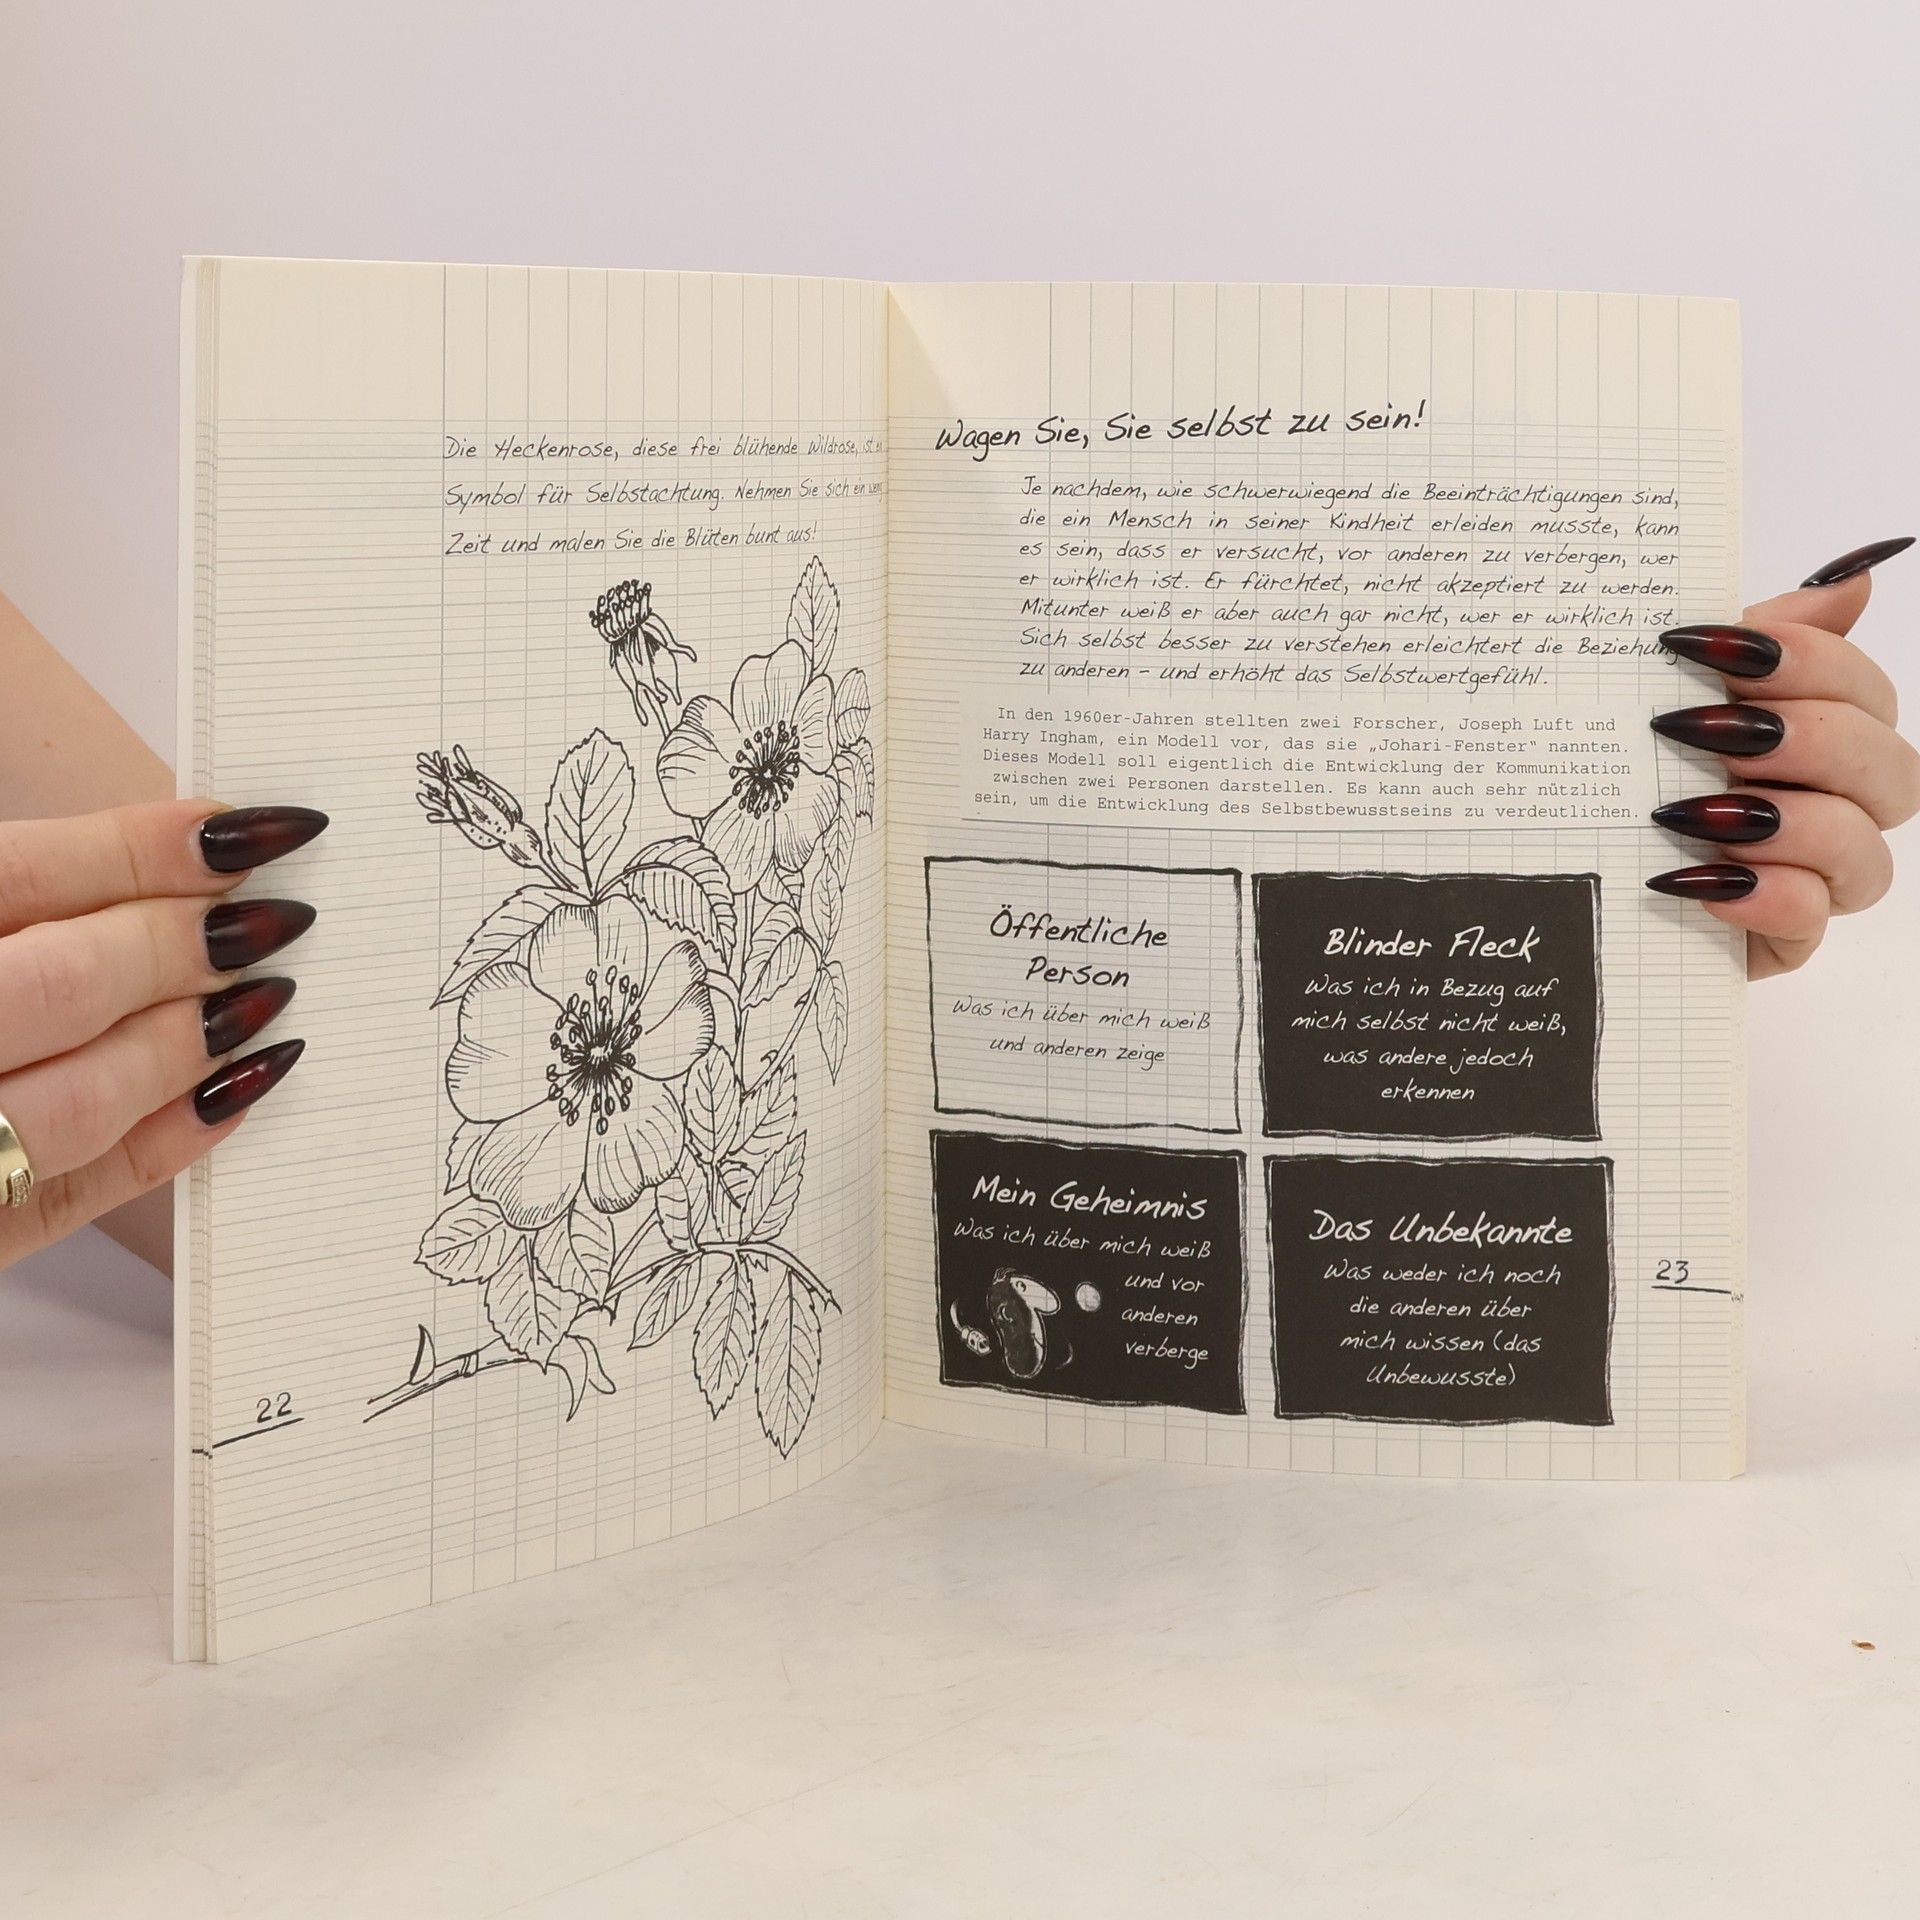 Die Heckenrose, diese frei blühende Wildrose, ist
Symbol für Selbstachtung. Nehmen Sie sich ein wenig
Zeit und malen Sie die Blüten bunt aus!
22
Wagen Sie, Sie selbst zu sein!
Je nachdem, wie schwerwiegend die Beeinträchtigungen sind,
die ein Mensch in seiner Kindheit erleiden musste, kann
es sein, dass er versucht, vor anderen zu verbergen, wer
er wirklich ist. Er fürchtet, nicht akzeptiert zu werden.
Mitunter weiß er aber auch gar nicht, wer er wirklich ist.
Sich selbst besser zu verstehen erleichtert die Beziehung
zu anderen – und erhöht das Selbstwertgefühl.
In den 1960er-Jahren stellten zwei Forscher, Joseph Luft und
Harry Ingham, ein Modell vor, das sie „Johari-Fenster“ nannten.
Dieses Modell soll eigentlich die Entwicklung der Kommunikation
zwischen zwei Personen darstellen. Es kann auch sehr nützlich
sein, um die Entwicklung des Selbstbewusstseins zu verdeutlichen.
Öffentliche
Person
Was ich über mich weiß
und anderen zeige
Blinder Fleck
Was ich in Bezug auf
mich selbst nicht weiß,
was andere jedoch
erkennen
Mein Geheimnis
Was ich über mich weiß
und vor
anderen
verberge
Das Unbekannte
Was weder ich noch
die anderen über
mich wissen (das
Unbewusste)
23